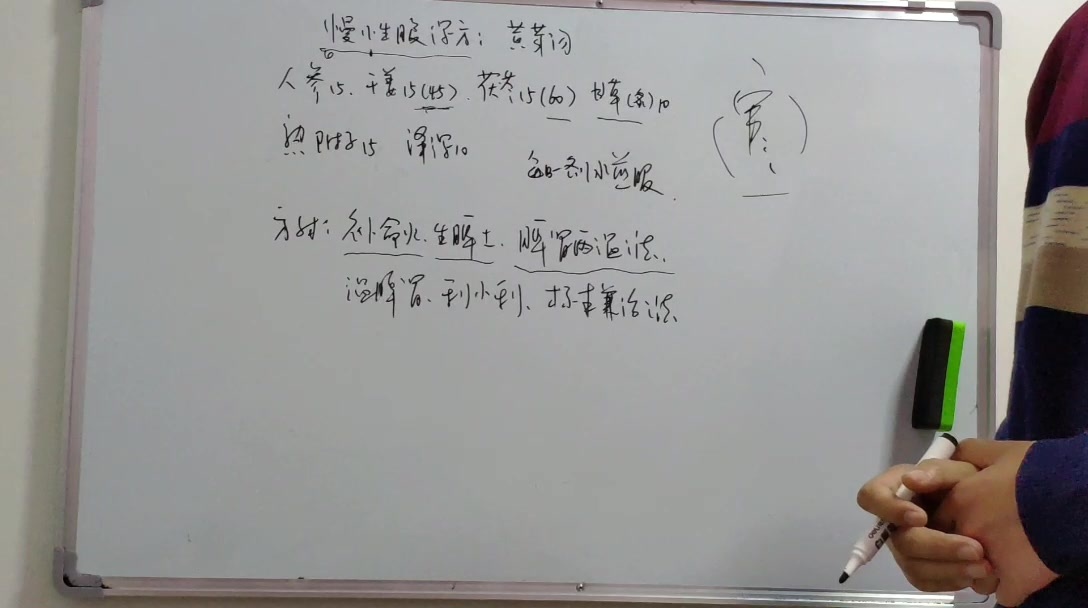 慢性腹泻方：黄芽汤
人参15、干姜15(45)、茯苓15(60) 甘草(炙)10
熟附子15 泽泻10
每日一剂水煎服.
方解：补命火、生脾土、脾胃两温法.
温脾胃、利小利、标本兼治法.
寒